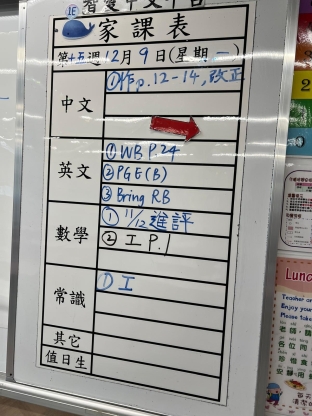 1E
智愛中文平台
家課表
第十五週12月9日(星期一)
中文
①作p.12-14,改正
英文
①WB P.24
②PGE(B)
③Bring RB
數學
①11/12進評
②工P.1
常識
①工
其它
值日生
Lunch
Teacher or
Enjoy your
Please take
老師,請
各位同
珍惜食
安靜用